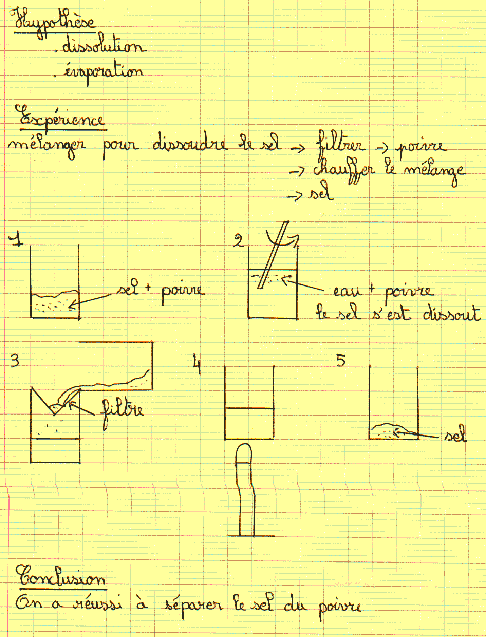 Hypothèse
. dissolution
. évaporation
Expérience
mélanger pour dissoudre le sel → filtrer → poivre
→ chauffer le mélange
→ sel
1
sel + poivre
2
eau + poivre
le sel s'est dissout
3
filtre
4
5
sel
Conclusion
On a réussi à séparer le sel du poivre